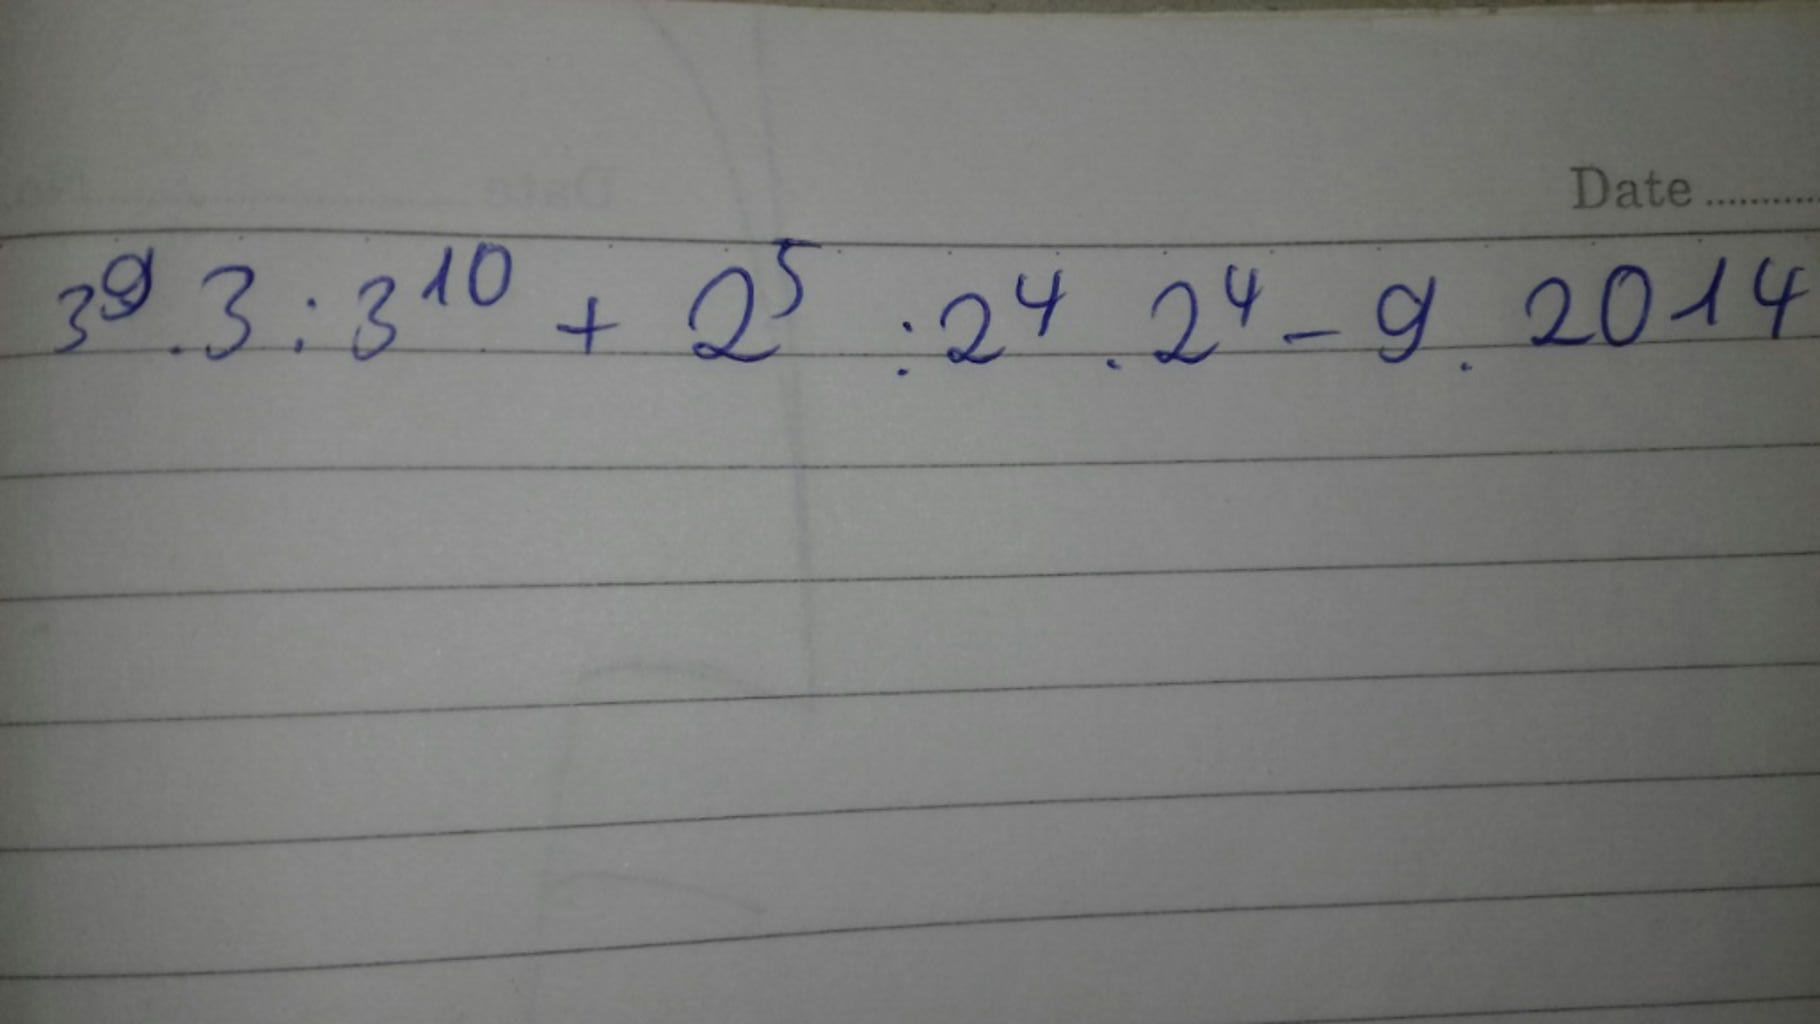 Date ..........
3⁹ . 3 : 3¹⁰ + 2⁵ : 2⁴ . 2⁴ - 9 . 2014